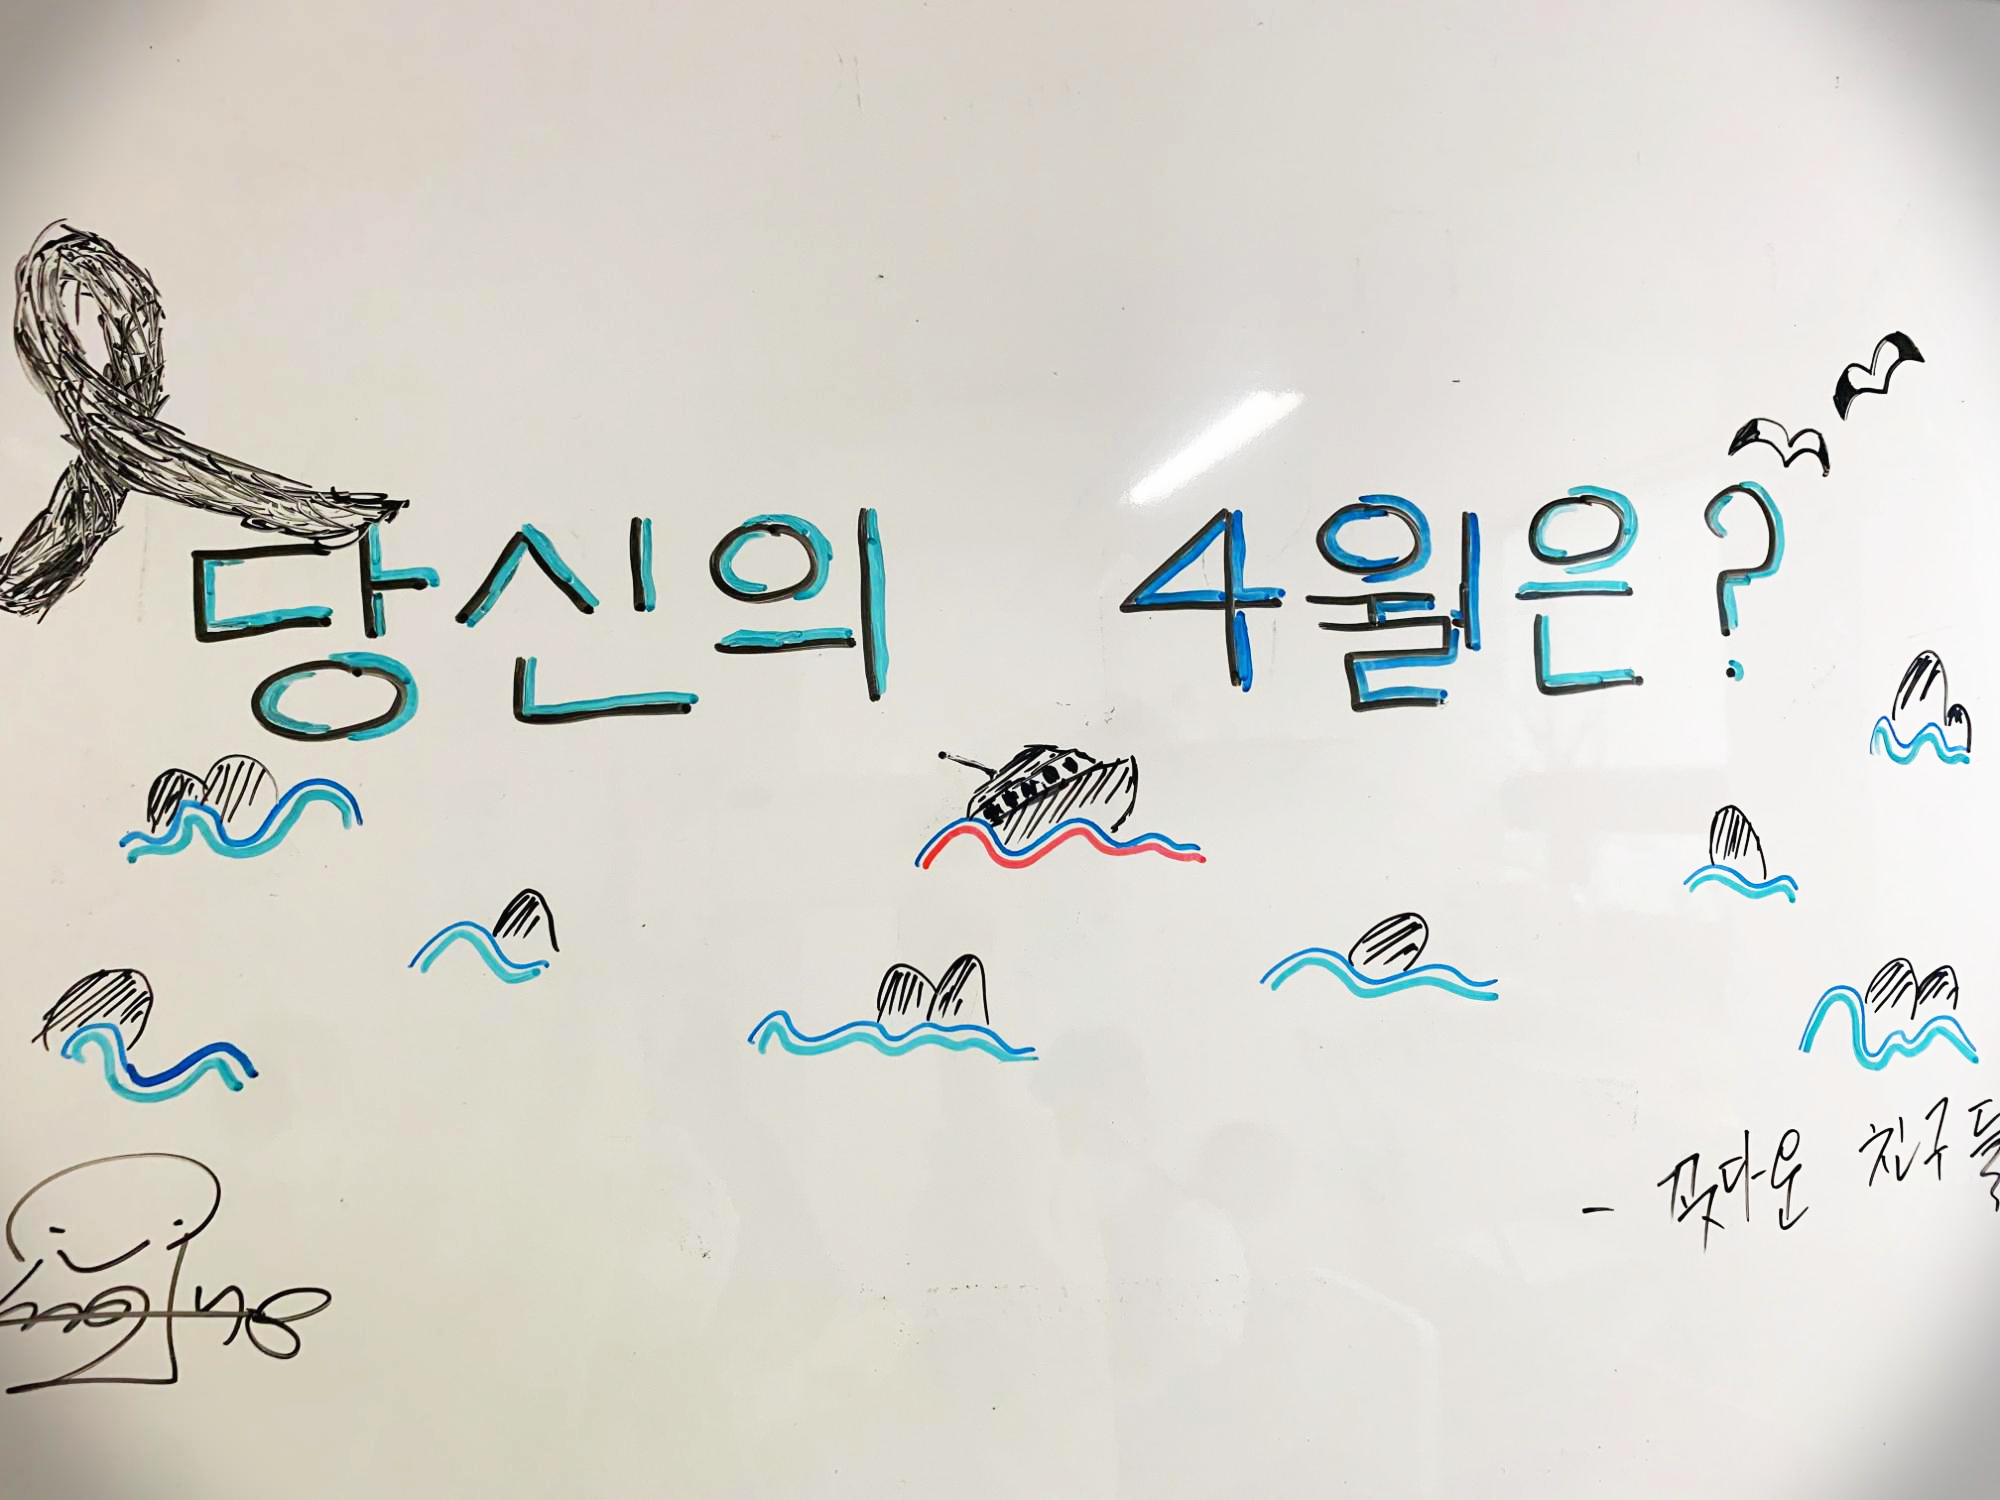 당신의 4월은?
- 꽃다운 친구들